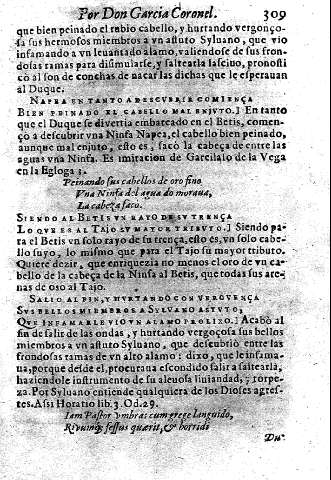 Por Don Garcia Coronel. 309
que bien peinado el rubio cabello, y hurtando vergonço-
sa sus hermosos miembros a vn astuto Syluano, que vio
infamando a vn leuantado alamo, valiendose de sus fron-
dosas ramas para disimularse, y saltearla lasciuo, pronosti
cò al son de conchas de nacar las dichas que le esperauan
al Duque.
NAPEA EN TANTO A DESCVBRIR COMIENÇA
BIEN PEINADO EL CABELLO MAL ENJVTO.] En tanto
que el Duque se diuertia embarcado en el Betis, comen-
çò a descubrir vna Ninfa Napea, el cabello bien peinado,
aunque mal enjuto, esto es, sacò la cabeça de entre las
aguas vna Ninfa. Es imitacion de Garcilaso de la Vega
en la Egloga 3.
Peinando sus cabellos de oro fino
Vna Ninfa del agua do moraua,
La cabeça saco.
SIENDO AL BETIS VN RAYO DE SV TRENÇA
LO QVE ES AL TAJO SV MAYOR TRIBVTO.] Siendo pa-
ra el Betis vn solo rayo de su trença, esto es, vn solo cabe-
llo suyo, lo mismo que para el Tajo su mayor tributo.
Quiere dezir, que enriquezia no menos el oro de vn ca-
bello de la cabeça de la Ninfa al Betis, que todas sus are-
nas de oso al Tajo.
SALIO AL FIN, Y HVRTANDO CON VERGVENÇA
SVS BELLOS MIEMBROS A SYLVANO ASTVTO,
QVE INFAMARLE VIO VN ALAMO PROLIXO.] Acabò al
fin de salir de las ondas, y hurtando vergonçosa sus bellos
miembros a vn astuto Syluano, que descubriò entre las
frondosas ramas de vn alto alamo: dixo, que le infama-
ua, porque desde el, procuraua escondido salir a saltearla,
haziendole instrumento de su aleuosa liuiandad, y torpe-
za. Por Syluano entiende qualquiera de los Dioses agres-
tes. Assi Horatio lib. 3. Od. 29.
Iam Pastor vmbras cum grege languido,
Rivumque fessus quærit, & horridi
Du-